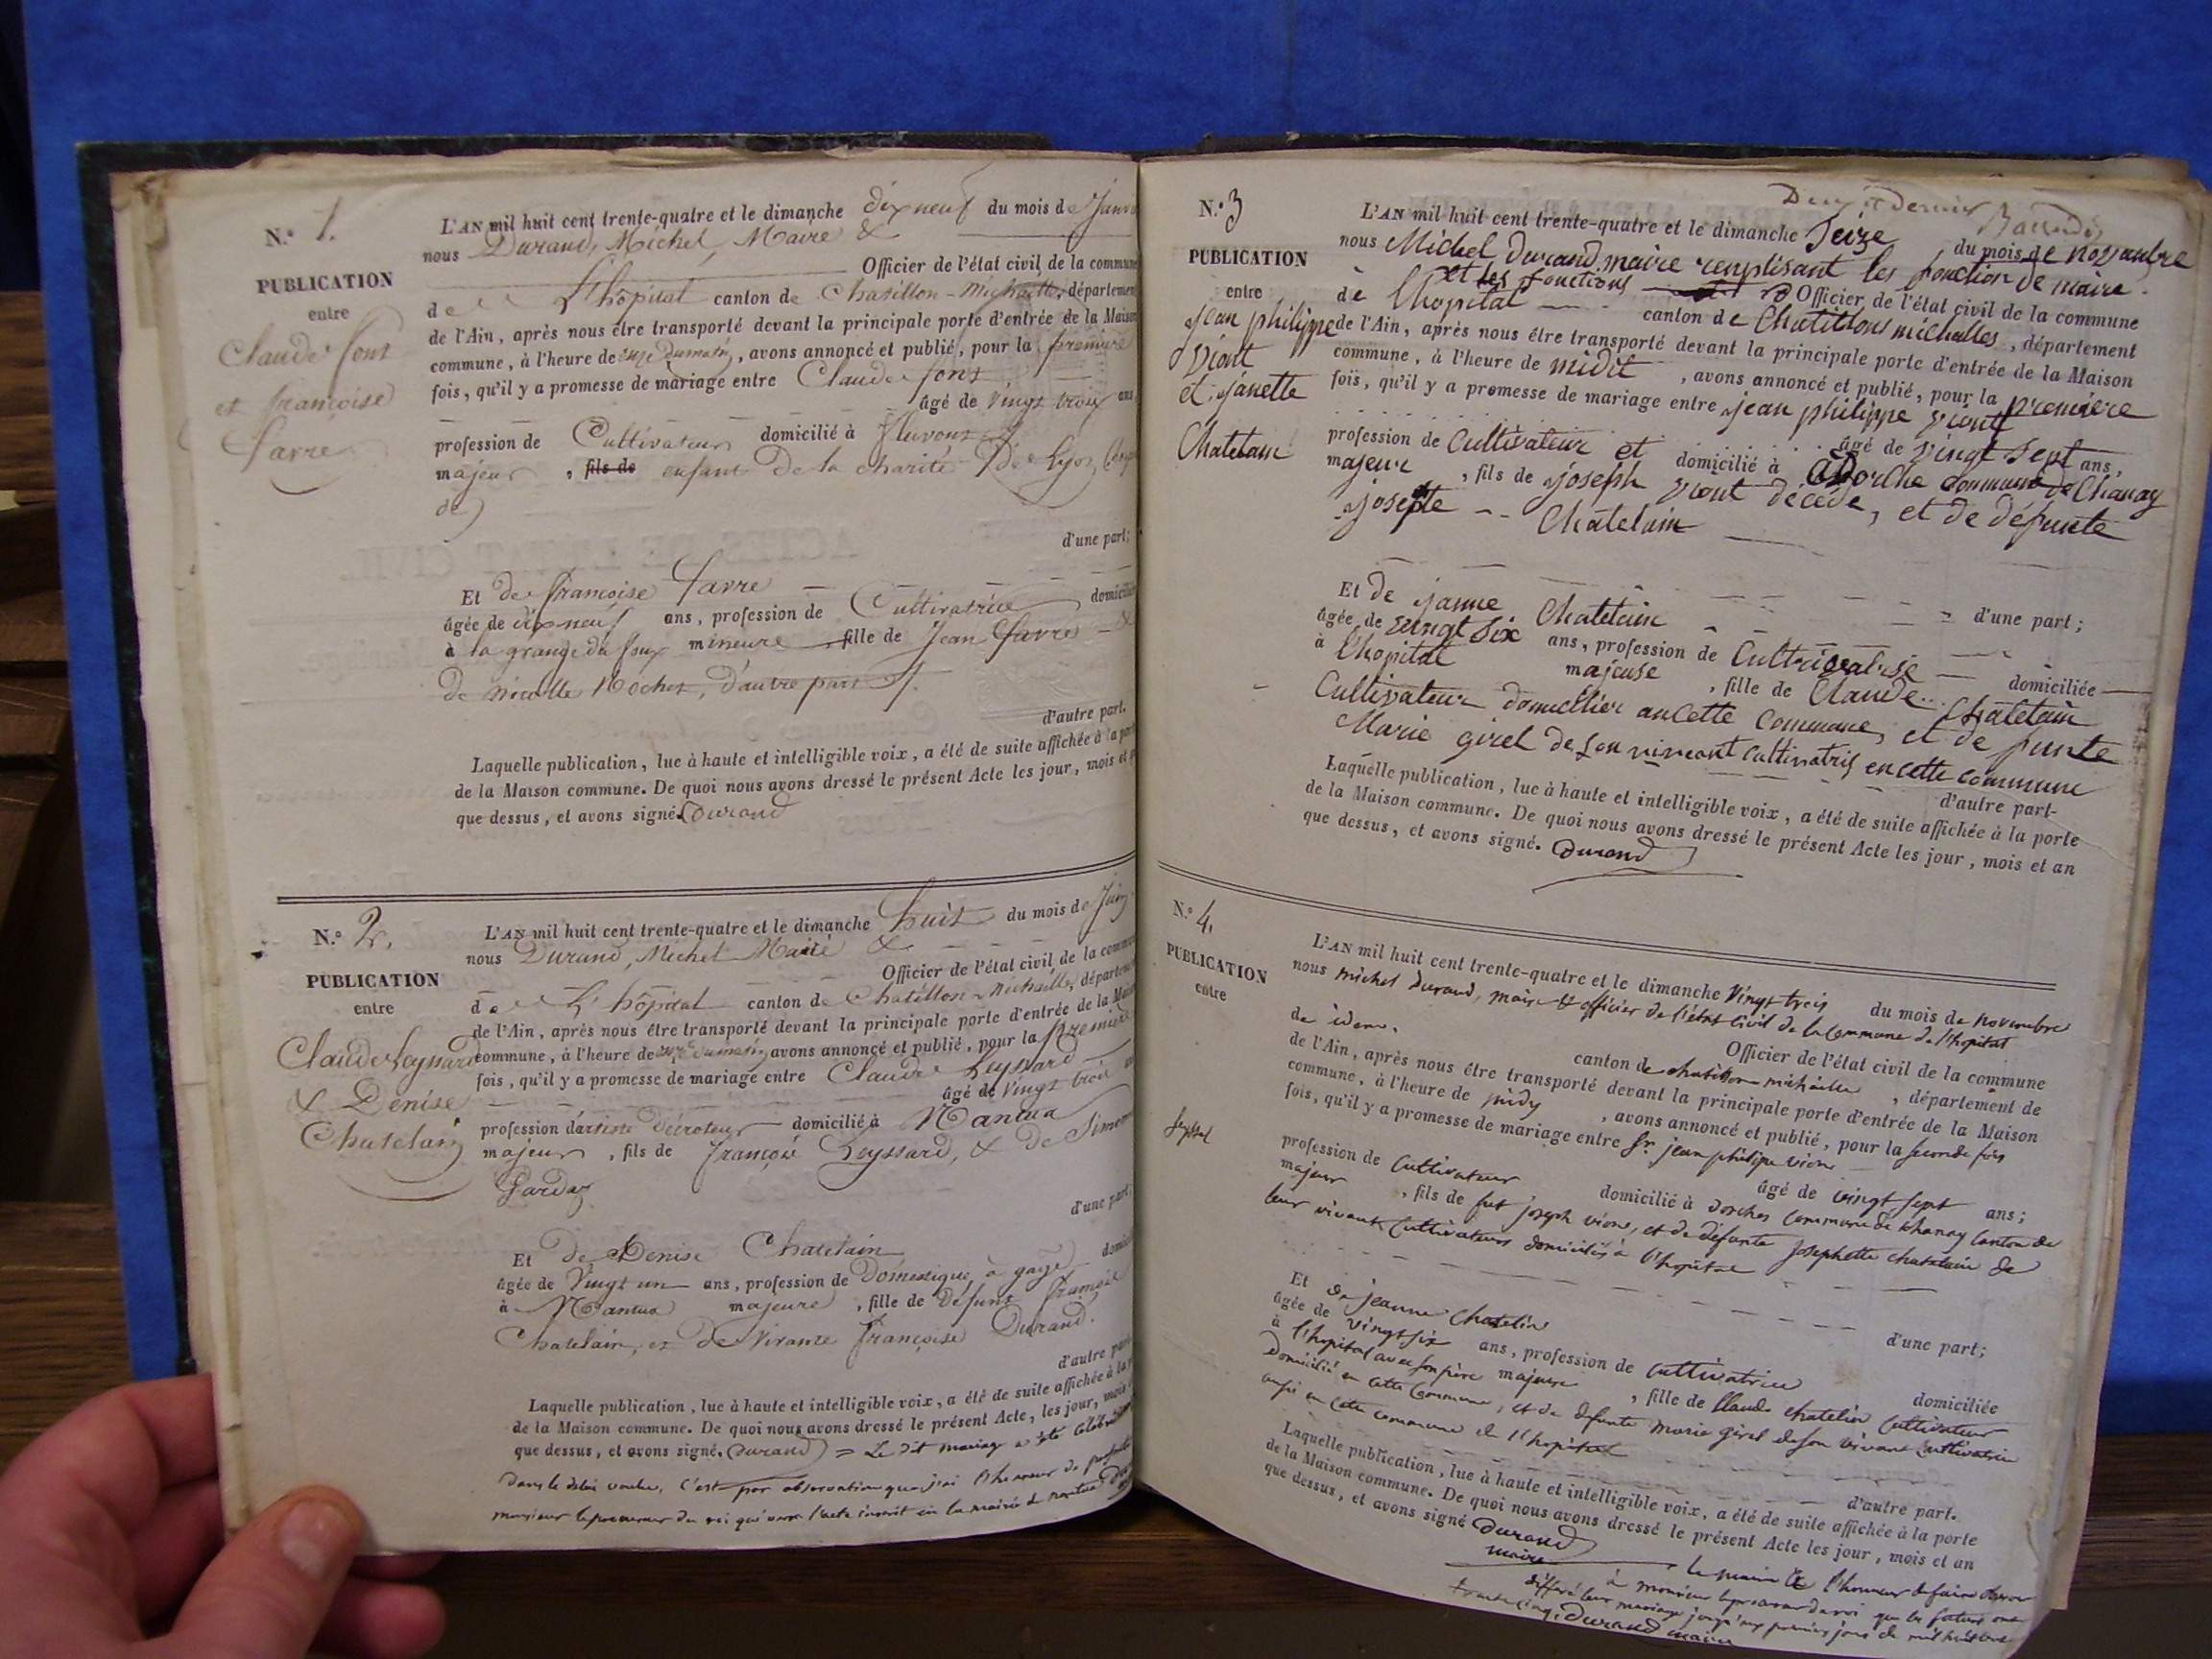 N.o 1.
PUBLICATION
entre
Claude font
et françoise
favre
L'AN mil huit cent trente-quatre et le dimanche dix neuf du mois de Janv
nous Durand, Michel, Maire &
Officier de l'état civil de la commune
de L'hôpital canton de Chatillon-Michaille, département
de l'Ain, après nous être transporté devant la principale porte d'entrée de la Maison
commune, à l'heure de onze du matin, avons annoncé et publié, pour la première
fois, qu'il y a promesse de mariage entre Claude font
âgé de vingt trois ans
profession de Cultivateur domicilié à
majeur, fils de enfant De la charité De Lyon
d'une part;
Et de françoise favre
âgée de dix neuf ans, profession de Cultivatrice domicilié
à la grange du mineure fille de Jean favre &
de nicolle Rochet, d'autre part
d'autre part.
Laquelle publication, lue à haute et intelligible voix, a été de suite affichée à la porte
de la Maison commune. De quoi nous avons dressé le présent Acte les jour, mois et
que dessus, et avons signé. Durand
N.o 2.
PUBLICATION
entre
Claude Leyssard
& Denise
Chatelain
L'AN mil huit cent trente-quatre et le dimanche huit du mois de Juin
nous Durand, Michel Maire &
Officier de l'état civil de la commune
de L'hôpital canton de Chatillon-Michaille, département
de l'Ain, après nous être transporté devant la principale porte d'entrée de la Maison
commune, à l'heure de onze du matin, avons annoncé et publié, pour la première
fois, qu'il y a promesse de mariage entre Claude Leyssard
âgé de vingt trois
profession d'artiste Décroteur domicilié à Nantua
majeur, fils de françois Leyssard, & de Simone
d'une part;
Et de Denise Chatelain
âgée de Vingt un ans, profession de Domestique à gage
à Nantua majeure, fille de Défunt françois
Chatelain, et de Vivante françoise Durand.
d'autre part
Laquelle publication, lue à haute et intelligible voix, a été de suite affichée à la
de la Maison commune. De quoi nous avons dressé le présent Acte, les jour, mois
que dessus, et avons signé. Durand = Le dit mariage a été célébré
dans le délai voulu, c'est par observation que j'ai l'honneur de
monsieur le procureur du roi qui verra l'acte inscrit en la mairie de nantua
Deux et Dernier
N.o 3
PUBLICATION
entre
jean philippe
Viont
et janette
Chatelain
L'AN mil huit cent trente-quatre et le dimanche seize du mois de novanbre
nous Michel Durand, maire renplisant les fonction de maire
et les fonctions Officier de l'état civil de la commune
de lhopital canton de Chatillons michalles, département
de l'Ain, après nous être transporté devant la principale porte d'entrée de la Maison
commune, à l'heure de midit, avons annoncé et publié, pour la première
fois, qu'il y a promesse de mariage entre jean philippe viont
âgé de vingt sept ans,
profession de Cultivateur et domicilié à adorche commune de Chanay
majeur, fils de joseph viont décédé, et de défunte
josepte Chatelain
d'une part;
Et de janne Chatelain
âgée de vingt six ans, profession de Cultrivatrise domiciliée
à lhopital majeuse, fille de Claude Chatelain
Cultivateur domicillier an cette commune, et de funte
Marie girel de son vivant cultivatris en cette commune
d'autre part-
Laquelle publication, lue à haute et intelligible voix, a été de suite affichée à la porte
de la Maison commune. De quoi nous avons dressé le présent Acte les jour, mois et an
que dessus, et avons signé. Durand
N.o 4.
PUBLICATION
entre
Seyssel
L'AN mil huit cent trente-quatre et le dimanche vingt trois du mois de novembre
nous michel durand, maire & officier de l'état civil de la commune de l'hopital
Officier de l'état civil de la commune
de idem. canton de chatillon michaille, département de
de l'Ain, après nous être transporté devant la principale porte d'entrée de la Maison
commune, à l'heure de midy, avons annoncé et publié, pour la seconde fois
fois, qu'il y a promesse de mariage entre Sr. jean philipe vion
âgé de vingt sept ans;
profession de Cultivateur domicilié à dorches commune de Chanay Canton de
majeur, fils de fut joseph vion, et de défunte josephette chatelain de
leur vivant cultivateurs domiciliés à l'hopital
d'une part;
Et de jeanne chatelin
âgée de vingt six ans, profession de cultivatrice domiciliée
à l'hopital avec son père majeure, fille de Claude chatelin cultivateur
domicilié en cette commune, et de défunte marie girel de son vivant cultivatrice
aussi en cette commune de l'hopital
d'autre part.
Laquelle publication, lue à haute et intelligible voix, a été de suite affichée à la porte
de la Maison commune. De quoi nous avons dressé le présent Acte les jour, mois et an
que dessus, et avons signé Durand
maire
le maire a l'honneur de faire observer
à monsieur le procureur du roi que les futurs ont
différé leur mariage jusqu'aux premiers jours de mil huit cent
trente cinq. Durand maire